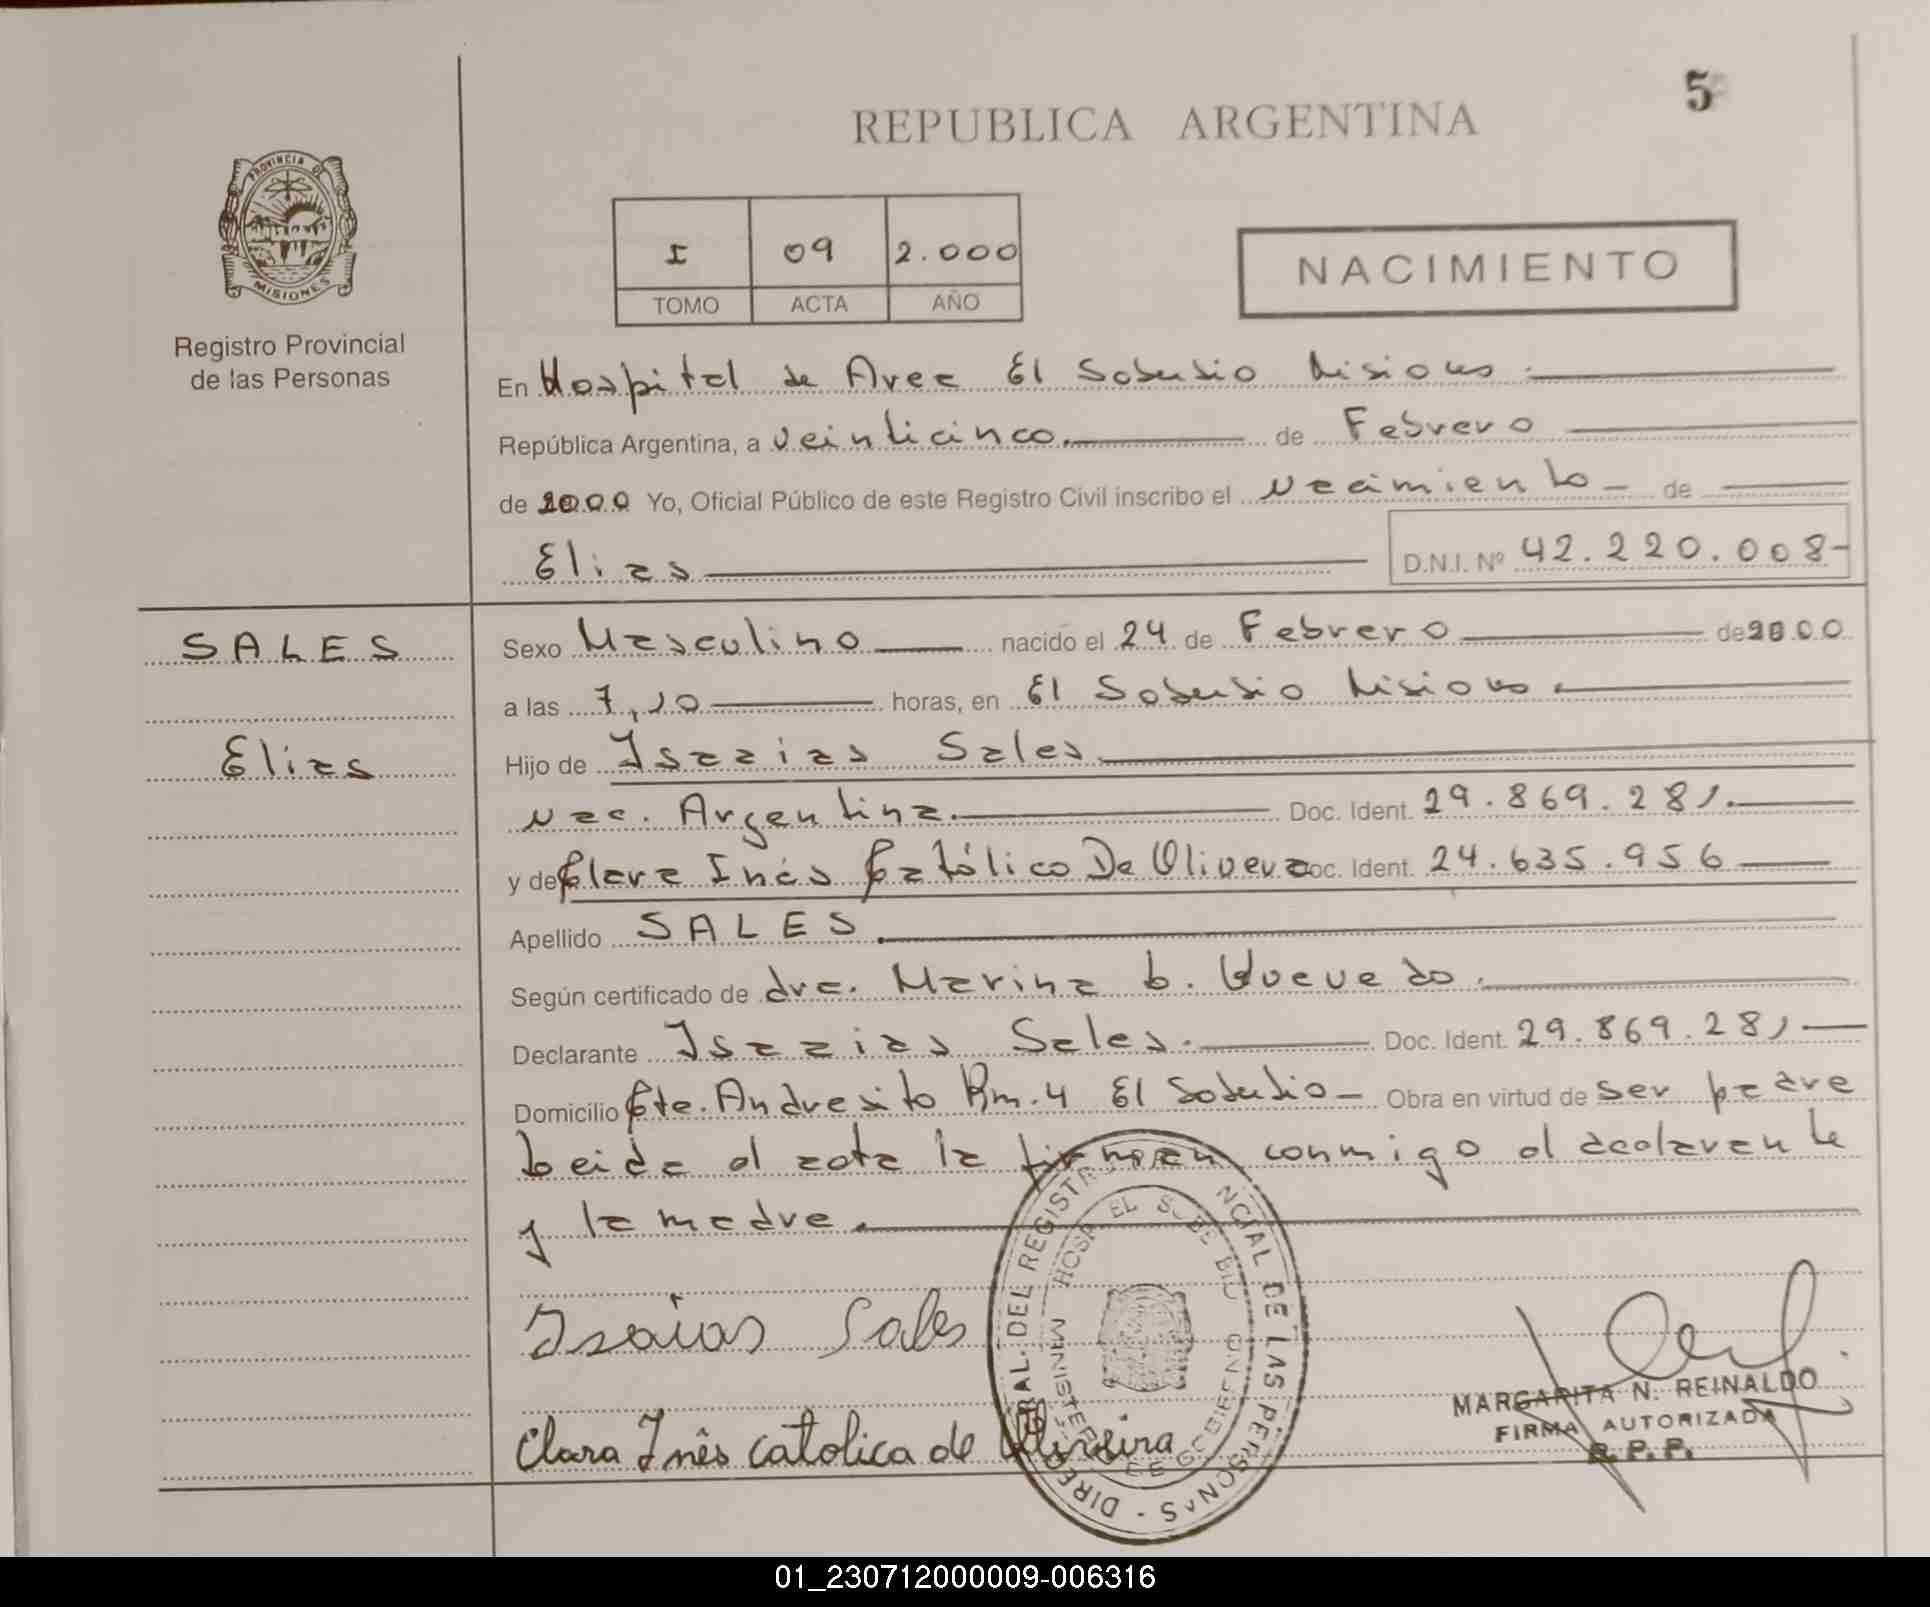 5
REPUBLICA ARGENTINA
PROVINCIA DE
MISIONES
Registro Provincial
de las Personas
I 09 2.000
TOMO ACTA AÑO
NACIMIENTO
En Hospital de Area El Soberbio Misiones.
República Argentina, a veinticinco. de Febrero
de 2000 Yo, Oficial Público de este Registro Civil inscribo el Nacimiento de
Elias D.N.I. Nº 42.220.008-
SALES
Elias
Sexo Masculino nacido el 24 de Febrero de 2000
a las 7,10 horas, en El Soberbio Misiones
Hijo de Isaaias Sales
Nac. Argentina. Doc. Ident. 29.869.281.
y de Clara Inés Católico De Olivera Doc. Ident. 24.635.956
Apellido SALES
Según certificado de dra. Marina b. Quevedo.
Declarante Isaaias Sales. Doc. Ident. 29.869.281
Domicilio Cte. Andresito Km. 4 El Soberbio - Obra en virtud de ser padre
Leida el acta la firman conmigo el declarante
y la madre.
Isaias Sales
Clara Inês catolica de Oliveira
MARGARITA N. REINALDO
FIRMA AUTORIZADA
R.P.P.
DE LAS PERSONAS
01_230712000009-006316